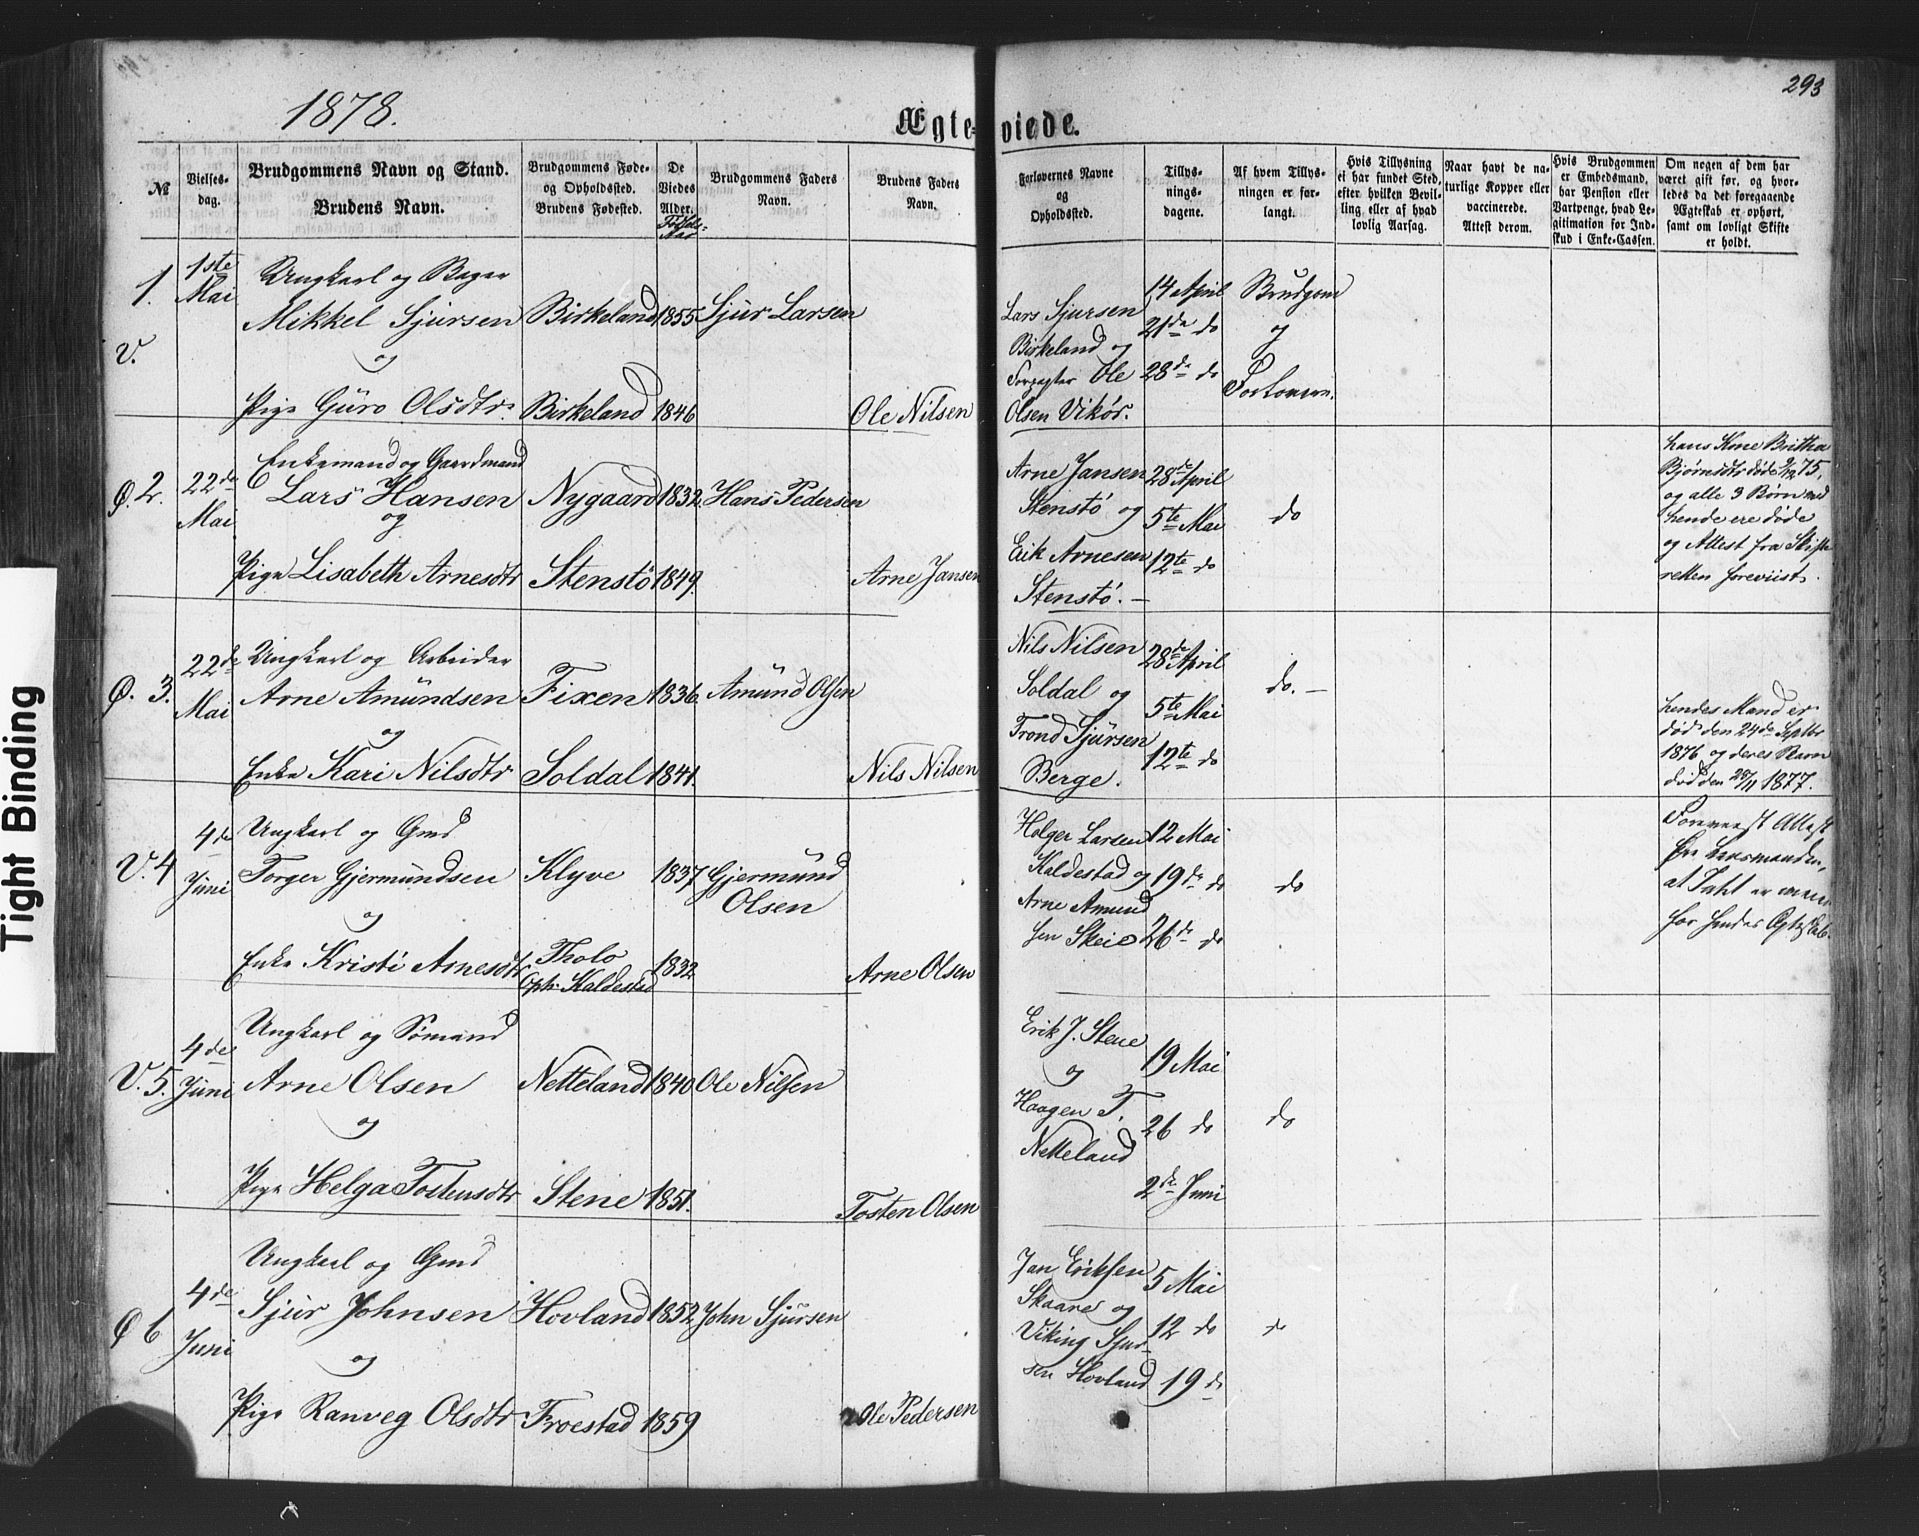 1878.
Ægteviede.
293
Tight Binding
№
Vielses-
dag.
Brudgommens Navn og Stand.
Brudens Navn.
Brudgommens Føde-
og Opholdssted.
Brudens Fødested.
De
Viedes
Alder.
Fødsels-
Aar
Brudgommens Faders
Navn.
Brudens Faders
Navn.
Forlovernes Navne
og
Opholdssted.
Tillys-
nings-
dagene.
Af hvem Tillys-
ningen er for-
langt.
Hvis Tillysning
ei har fundet Sted,
efter hvilken Bevil-
ling eller af hvad
lovlig Aarsag.
Naar havt de na-
turlige Kopper eller
vaccinerede.
Attest derom.
Hvis Brudgommen
er Embedsmand,
har Pension eller
Vartpenge, hvad Le-
gitimation for Ind-
skud i Enke-Cassen.
Om nogen af dem har
været gift før, og hvor-
ledes da det foregaaende
Ægteskab er ophørt,
samt om lovligt Skifte
er holdt.
1.
V.
1ste
Mai
Ungkarl og Bager
Mikkel Sjursen
og
Pige Guro Olsdtr.
Birkeland
Birkeland
1855
1846
Sjur Larsen
Ole Nilsen
Lars Sjursen
Birkeland og
Forpagter Ole
Olsen Vikör.
14 April
21de do
28de do
Brudgom
og
Forlovern.
Ø. 2.
22de
Mai
Enkemand og Gaardmand
Lars Hansen
og
Pige Lisabeth Arnesdtr
Nygaard
Stenstö
1832
1849.
Hans Pedersen
Arne Jansen
Arne Jansen
Stenstö og
Erik Arnesen
Stenstö. –
28de April
5te Mai
12te do
do
hans Kone Brittha
Bjørnsdtr døde 9/12 75,
og alle 3 Børn med
hende ere døde
og Attest fra Skifte
retten foreviist.
Ø. 3.
22de
Mai
Ungkarl og Arbeider
Arne Amundsen
og
Enke Kari Nilsdtr
Fixen
Soldal
1836
1841.
Amund Olsen
Nils Nilsen
Nils Nilsen
Soldal og
Trond Sjursen
Berge.
28de April
5te Mai
12te do
do. –
hendes Mand er
død den 24de Septbr
1876 og deres Barn
død den 28/11 1877.
V. 4
4de
Juni
Ungkarl og Gmd
Torger Gjermundsen
og
Enke Kristi Arnesdtr
Klyve
Tholo
Oph. Kaldestad
1837
1832
Gjermund
Olsen
Arne Olsen
Holger Larsen
Kaldestad og
Arne Amund
sen Skeie
12 Mai
19de do
26de do
do
Foreviist Attest
fra Lensmanden,
at Intet er
for hendes Ægteskab.
V. 5.
4de
Juni
Ungkarl og Sømand
Arne Olsen
og
Pige Helga Tostensdtr
Netteland
Stene
1840
1851.
Ole Nilsen
Tosten Olsen
Erik J. Stene
og
Haagen T.
Netteland
19 Mai
26 do
2de Juni
do
Ø 6
4de
Juni
Ungkarl og Gmd
Sjur Johnsen
og
Pige Ranveg Olsdtr
Hovland
Froestad
1852
1859
John Sjursen
Ole Pedersen
Jan Eriksen
Skaare og
Viking Sjur-
sen Hovland
5 Mai
12 do
19 do
do